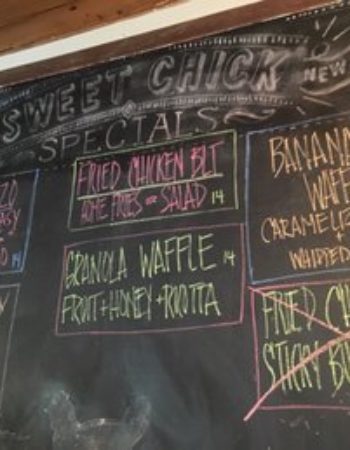 SWEET CHICK
NEW
SPECIALS
FRIED CHICKEN BLT
HOME FRIES OR SALAD 14
GRANOLA WAFFLE 14
FRUIT + HONEY + RICOTTA
BANANA
WAFF
CARAMELIZ
+
WHIPPED
FRIED CH
STICKY BU